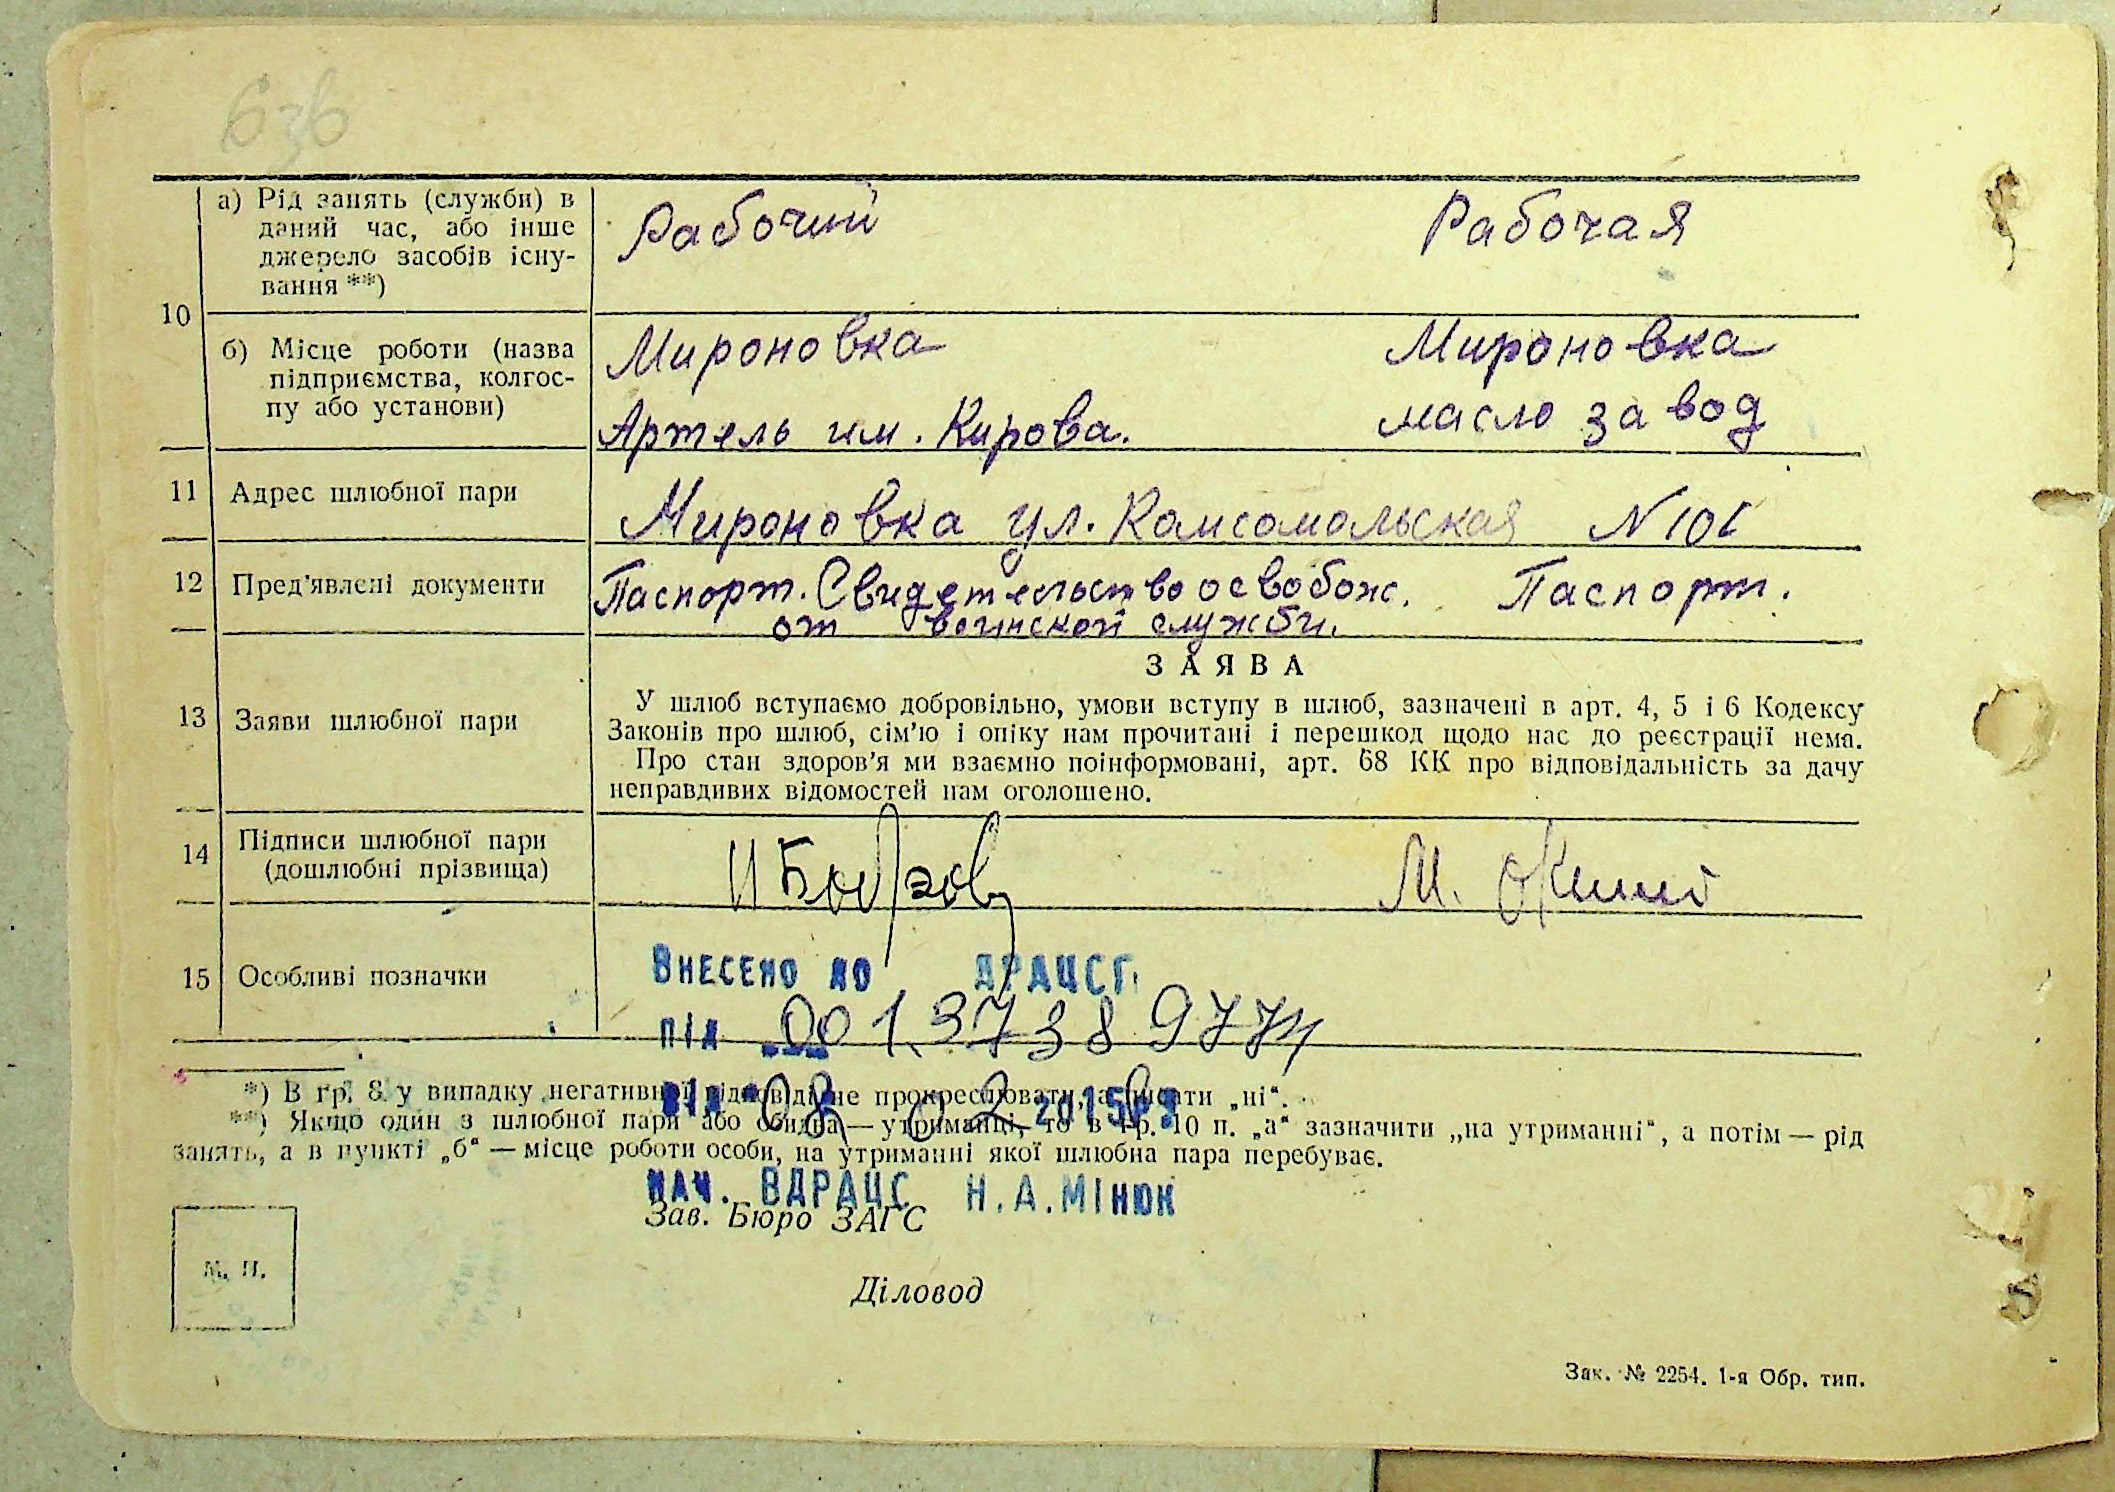 а) Рід занять (служби) в
даний час, або інше
джерело засобів існу-
вання **)
Рабочий
Рабочая
10
б) Місце роботи (назва
підприємства, колгос-
пу або установи)
Мироновка
Артель им. Кирова.
Мироновка
масло завод
11 Адрес шлюбної пари
Мироновка ул. Комсомольская
12 Пред'явлені документи
Паспорт. Свидетельство освобож.
от воинской службы.
Паспорт.
13 Заяви шлюбної пари
ЗАЯВА
У шлюб вступаємо добровільно, умови вступу в шлюб, зазначені в арт. 4, 5 і 6 Кодексу
Законів про шлюб, сім'ю і опіку нам прочитані і перешкод щодо нас до реєстрації нема.
Про стан здоров'я ми взаємно поінформовані, арт. 68 КК про відповідальність за дачу
неправдивих відомостей нам оголошено.
14 Підписи шлюбної пари
(дошлюбні прізвища)
М.
15 Особливі позначки
Внесено до ДРАЦСГ
під 001
від 08 02 2015
*) В гр. 8 у випадку негативної відповіді не прокреслювати, а писати „ні“.
**) Якщо один з шлюбної пари або обидва — утриманці, то в гр. 10 п. „а“ зазначити „на утриманні“, а потім — рід
занять, а в пункті „б“ — місце роботи особи, на утриманні якої шлюбна пара перебуває.
НАЧ. ВДРАЦС Н.А.МІНЮК
Зав. Бюро ЗАГС
М. П.
Діловод
Зак. № 2254. 1-я Обр. тип.